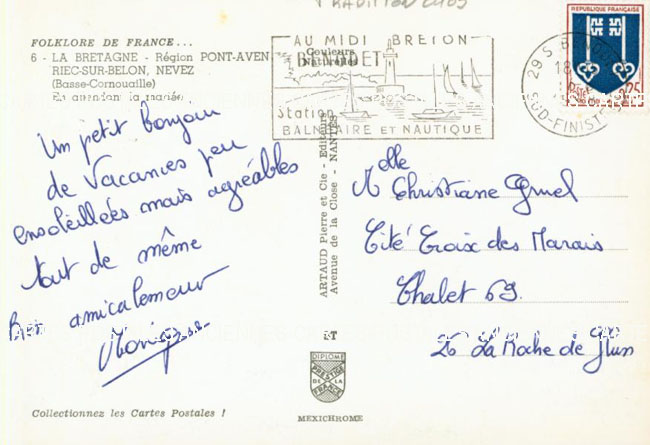 TRADITION
FOLKLORE DE FRANCE...
6 - LA BRETAGNE - Région PONT-AVEN
RIEC-SUR-BELON, NEVEZ
(Basse-Cornouaille)
En attendant la mariée
Couleurs
Naturelles
AU MIDI BRETON
BENODET
Station
BALNEAIRE ET NAUTIQUE
REPUBLIQUE FRANÇAISE
0,25
29 S
18
SUD-FINISTERE
Un petit bonjour
de vacances peu
ensoleillées mais agréables
tout de même
Bien amicalement
Monique
ARTAUD Pierre et Cie - Editeurs
Avenue de la Close - NANTES
Melle Christiane Gruel
Cité Croix des Marais
Chalet 69.
La Roche de Glun
ET
DIPLOME
PRESTIGE
DE LA
FRANCE
MEXICHROME
Collectionnez les Cartes Postales !